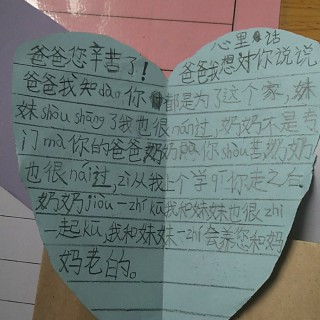 心里话
爸爸您辛苦了！爸爸我想对你说说
爸爸我知dao你都是为了这个家，妹
妹shòu shāng了我也很nán过，奶奶不是专
门mà你的爸爸，奶奶向你shou苦，奶奶
也很nán过，zì从我上个学qī你走之后
奶奶jiou一zhí ku我和妹妹也很zhi
一起ku，我和妹妹一zhí会养您和妈
妈老的。